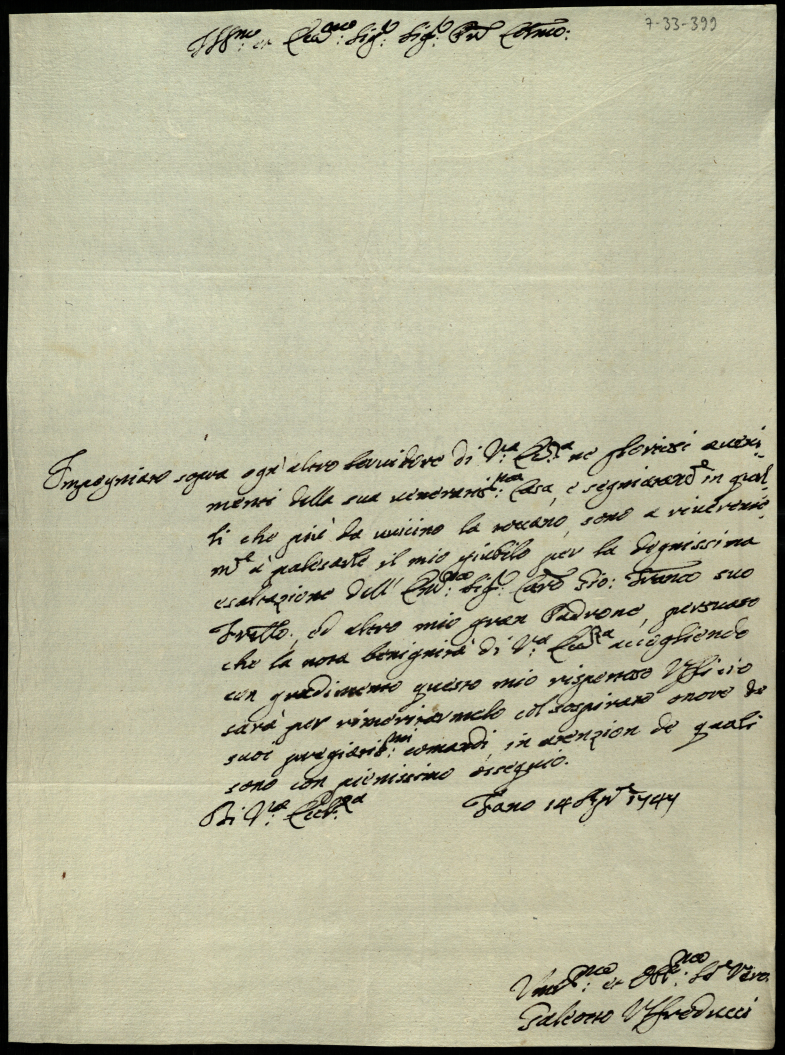 7-33-399
Ill:mo et Ecc:mo Sig:r Sig:r Pne Colmo:
Impegniato sopra ogn'altro servidore di V:a Ecc:a ne gloriosi aueni-
menti della sua veneratis:ma Casa, e segniatam:te in quel-
li che più da uicino la toccano, sono a riverente-
m:te palesarle il mio giubilo per la degnissima
esaltazione dell' Em:mo Sig: Card: Gio: Franco suo
Fratello, ed altro mio gran Padrone, persuaso
che la nota benignità di V:a Ecc:za accogliendo
con gradimento questo mio rispettoso Ufficio
sarà per rimeritarmelo col sospirato onore de
suoi pregiatis:mi comandi, in atenzion de quali
sono con pienissimo ossequio.
Di V:a Ecc:za Fano 14 Apr:le 1747
Um:mo et Obb:mo Se:re Vero
Galeotto Uffreducci